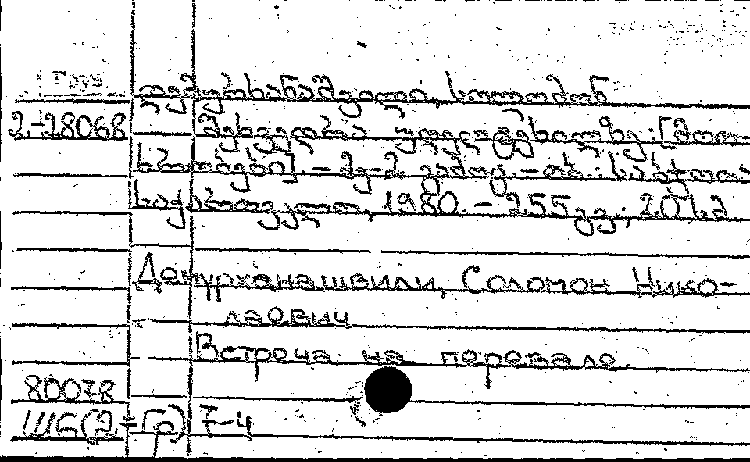 Груз
დემურხანაშვილი, სოლომონ
2-28068 შეხვედრა უღელტეხილზე: [მოთ-
ხრობები] - მე-2 გამოც. - თბ.: საბჭოთა
საქართველო, 1980. - 255 გვ.; 20 სმ
Демурханашвили, Соломон Нико-
лаевич
Встреча на перевале
80078
Ш6(2=Гр)7-4